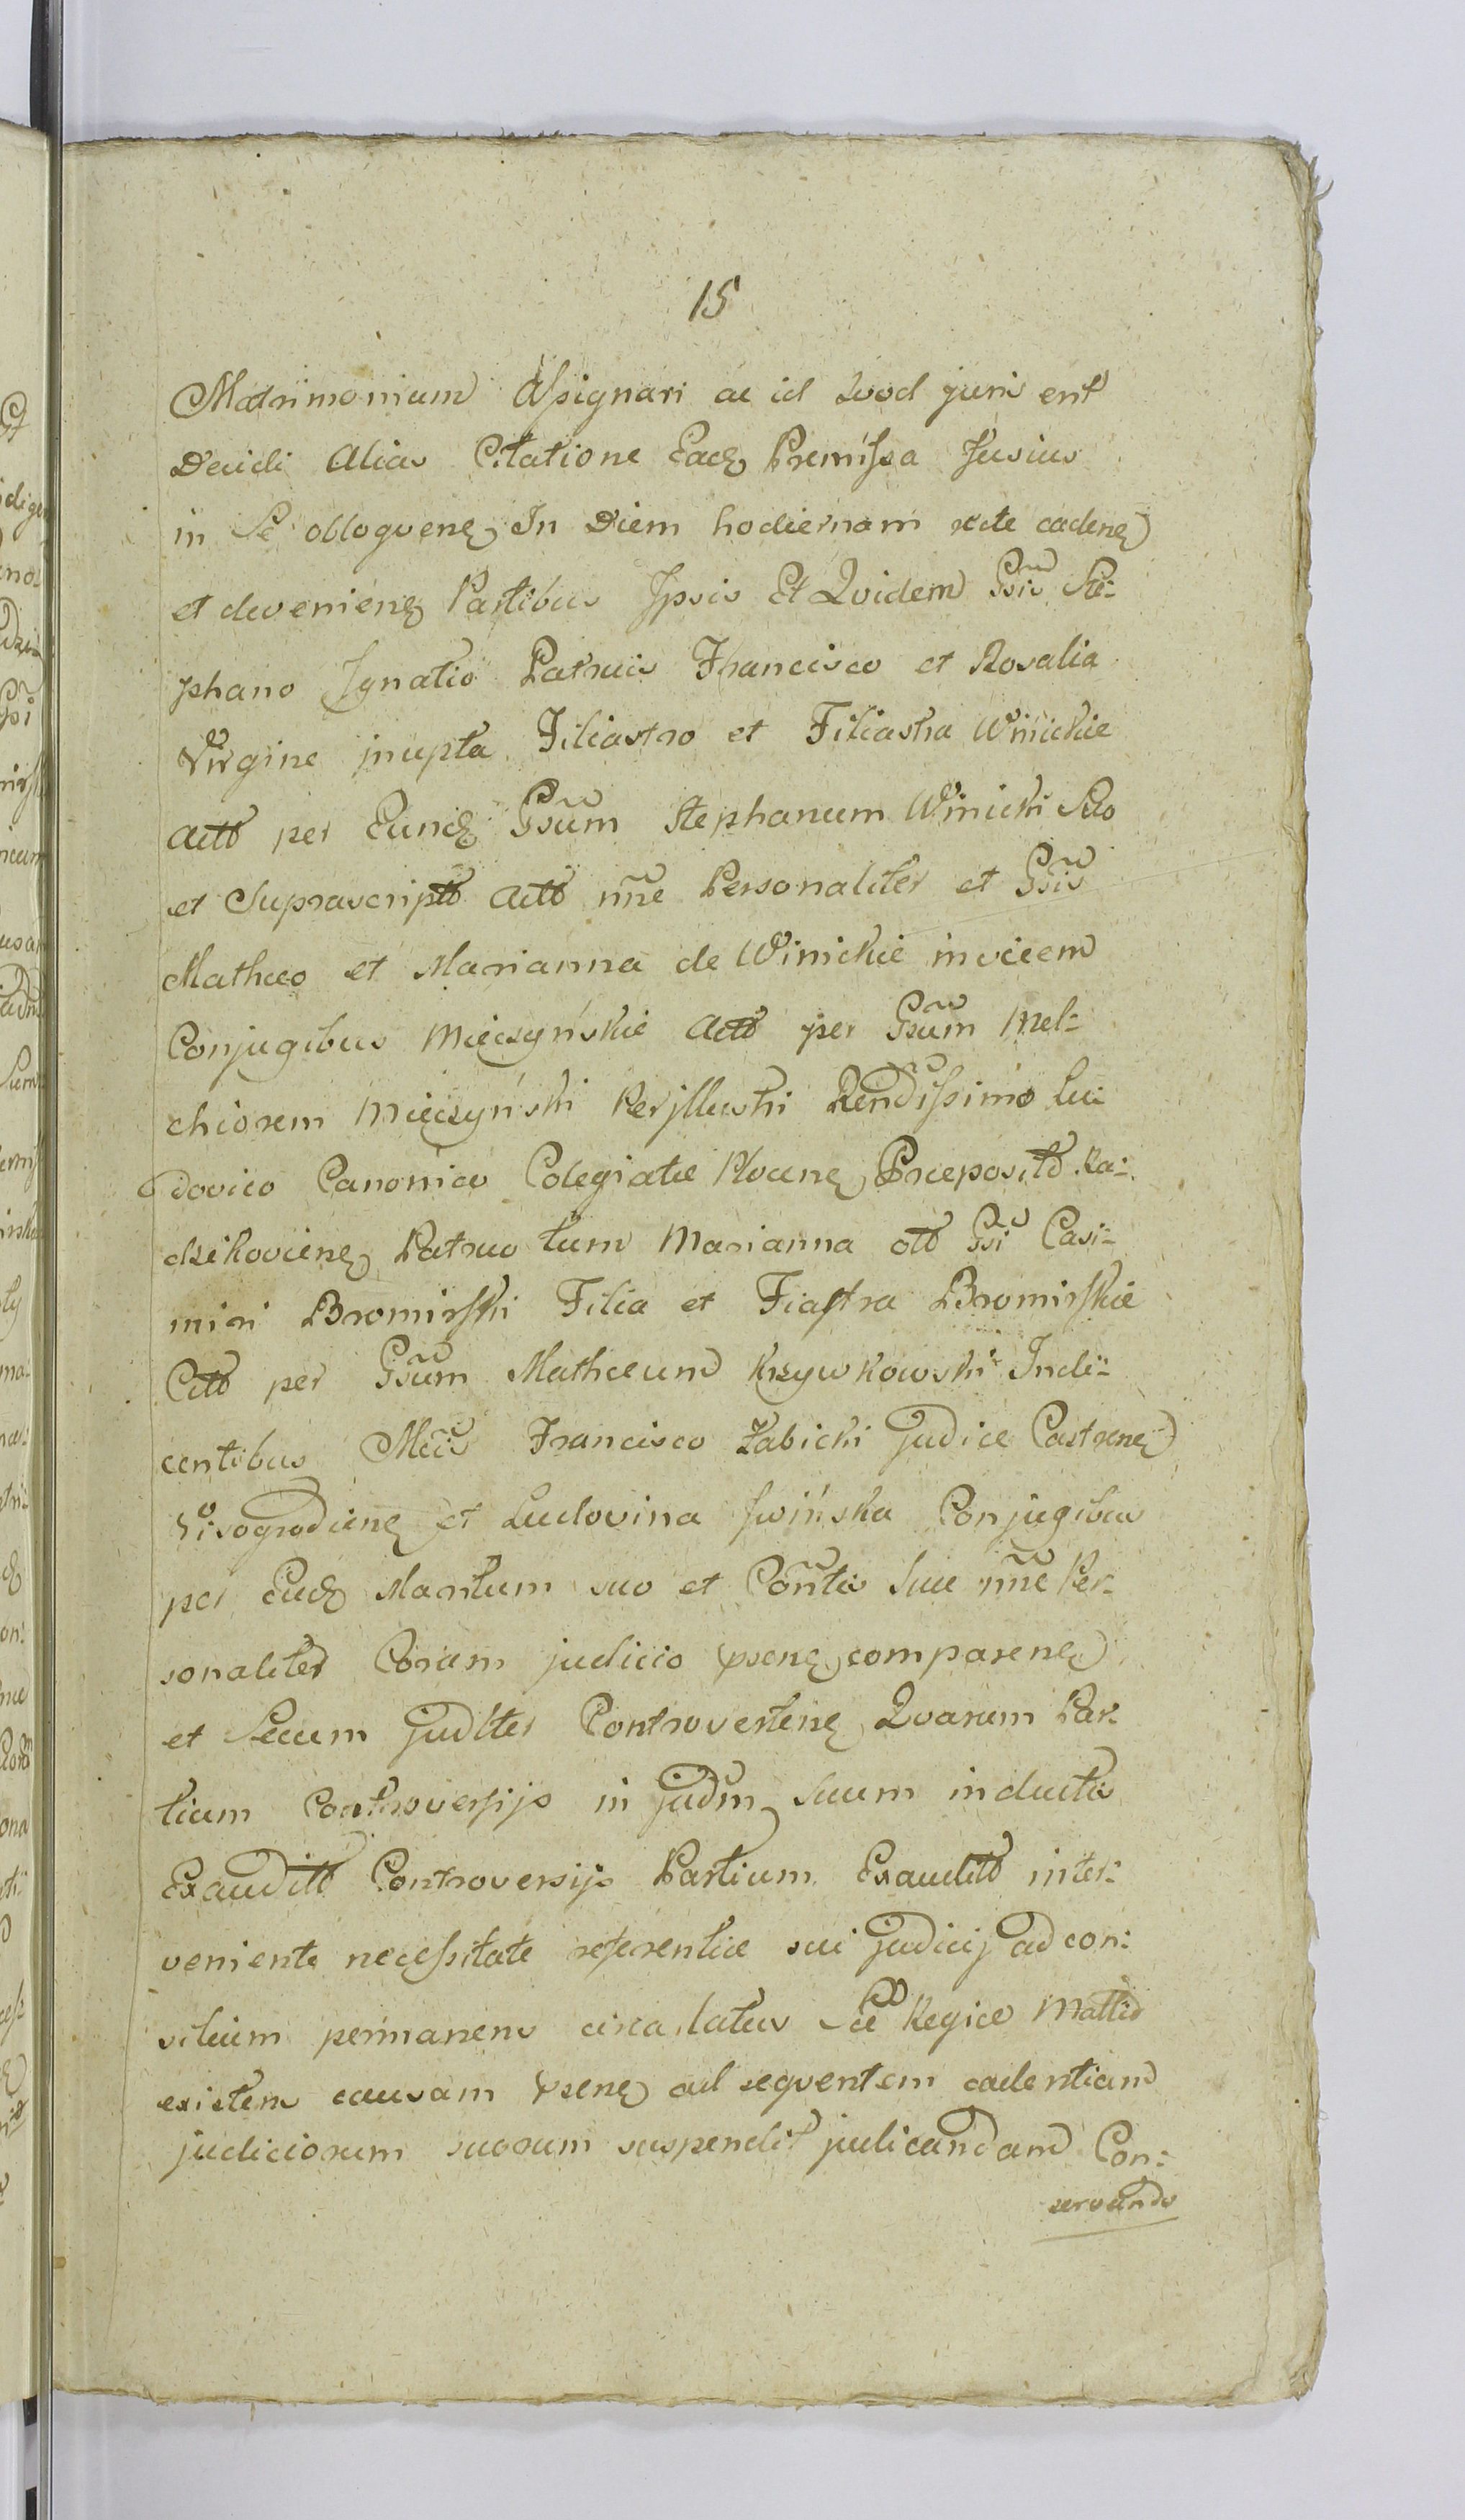 15
Matrimonium Assignari ac id Quod juris erit
Decidi Alias Citatione Eadq Premissa fusius
in Se obloquenq In Diem hodiernam rite cadenq
et devenienq Partibus Ipsis Et Quidem Gsis Ste:
phano Ignatio Patruis Francisco et Rosalia
Virgine inupta Filiastro et Filiastra Winickie
Actb per Eundq Gsum Stephanum Winicki Suo
et Suprascriptb Actb nne Personaliter et Gsis
Matheo et Marianna de Winickie invicem
Conjugibus Mieczyńskie Actb per Gsum Mel:
chiorem Mieczyński Perillustri Rendissimo Lu:
dovico Canonico Colegiatæ Plocenq Præposito Ra:
dzikovienq Patruo tum Marianna otb Gsi Casi:
miri Bromirski Filia et Fiastra Bromirskie
Citb per Gsum Mathæum Krzywkowski Indu:
centibus Mcis Francisco Zabicki Judice Castrenq
Visogrodienq et Ludovina Swińska Conjugibus
per Eudq Maritum suo et Contis Suæ nne Per:
sonaliter Coram judicio psenq comparenq
et Secum Judlter Controvertenq Quarum Par:
tium Controversijs in judm suum inductis
Exauditb Controversijs Partium Exauditb inter:
veniente necessitate referentiæ sui judicij ad con:
silium permanens circa latus Sæ Regiæ Mattis
existens causam psenq ad sequentem cadentiam
judiciorum suorum suspendit judicandam Con:
servando